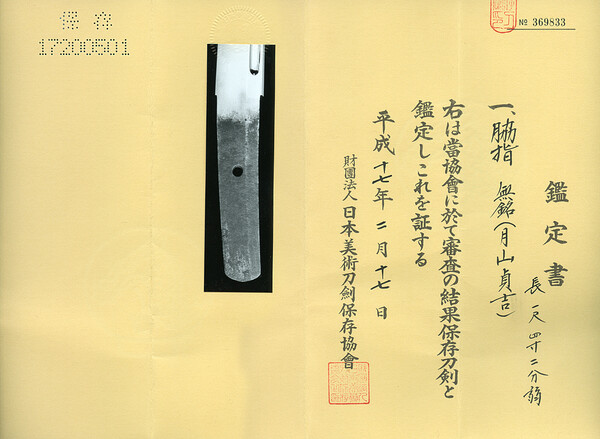 № 369833
鑑定書
一、脇指 無銘(月山貞吉)
長一尺四寸二分弱
右は當協會に於て審査の結果保存刀剣と
鑑定しこれを証する
平成十七年二月十七日
財團法人 日本美術刀劍保存協會
保存
17200501